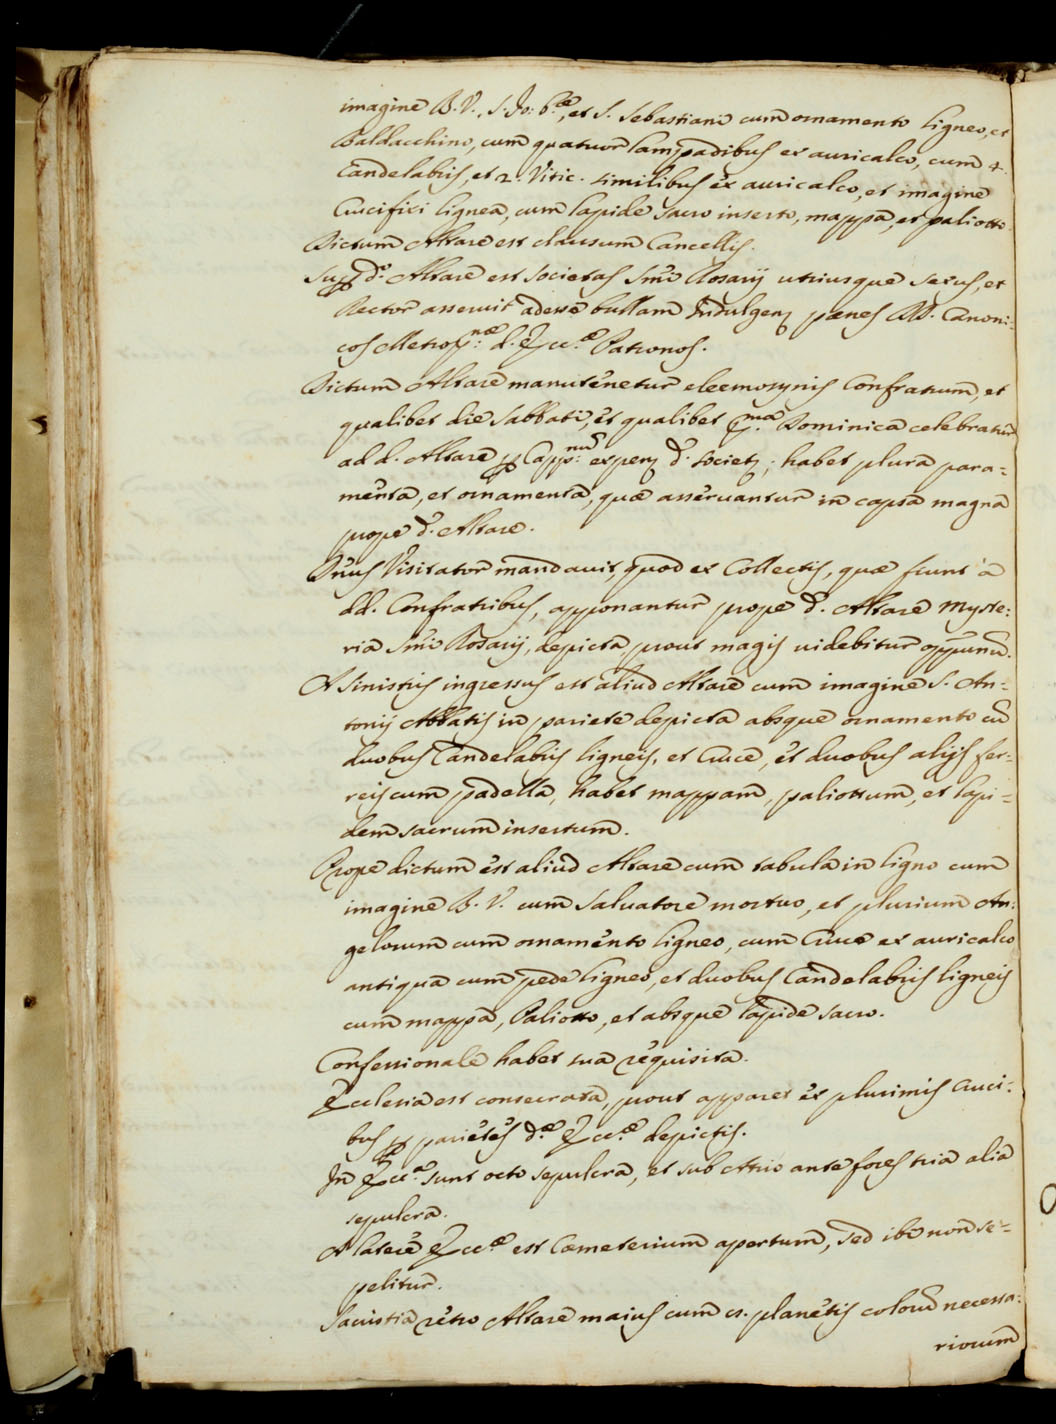 imagine B. V., S. Jo: b.æ, et S. Sebastiani cum ornamento ligneo, et
Baldacchino, cum quatuor lampadibus ex auricalco, cum 4.
candelabris, et 2. Vitic. similibus ex auricalco, et imagine
Crucifixi lignea, cum lapide sacro inserto, mappa, et paliotto.
Dictum Altare est clausum Cancellis.
Sup. d.º Altare est societas Smi Rosarij utriusque sexus, et
Rector asseruit adesse bullam Indulgen. pænes DD. Canoni=
cos Metrop.næ d. Ecc.æ Patronos.
Dictum Altare manutenetur eleemosynis Confratrum, et
qualibet die Sabbati, et qualibet p.ma Dominica celebratur
ad d. Altare p Capp.num expen. d. societ.; habet plura para=
menta, et ornamenta, quæ asservantur in capsa magna
prope d. Altare.
Dnus Visitator mandavit, quod ex Collectis, quæ fiunt à
dd. Confratribus, apponantur prope d. Altare Myste:
ria Smi Rosarij, depicta, prout magis videbitur oppunū.
A sinistris ingressus est aliud Altare cum imagine S. An=
tonij Abbatis in pariete depicta absque ornamento cū
duobus Candelabris ligneis, et Cruce, et duobus alijs fer=
reis cum padella, habet mappam, paliottum, et lapi=
dem sacrum insertum.
Prope dictum est aliud Altare cum tabula in ligno cum
imagine B. V. cum Salvatore mortuo, et plurium An:
gelorum cum ornamento ligneo, cum Cruce ex auricalco
antiqua cum pede ligneo, et duobus Candelabris ligneis
cum mappa, Paliotto, et absque lapide sacro.
Confessionale habet sua requisita.
Ecclesia est consecrata, prout apparet ex plurimis Cruci:
bus p parietes d.æ Ecc.æ depictis.
In Ecc.a sunt octo sepulcra, et sub Atrio ante fores tria alia
sepulcra.
A latere Ecc.æ est Cœmeterium apertum, sed ibi non se=
pelitur.
Sacristia retro Altare maius cum cs. planetis colorū necessa:
riorum